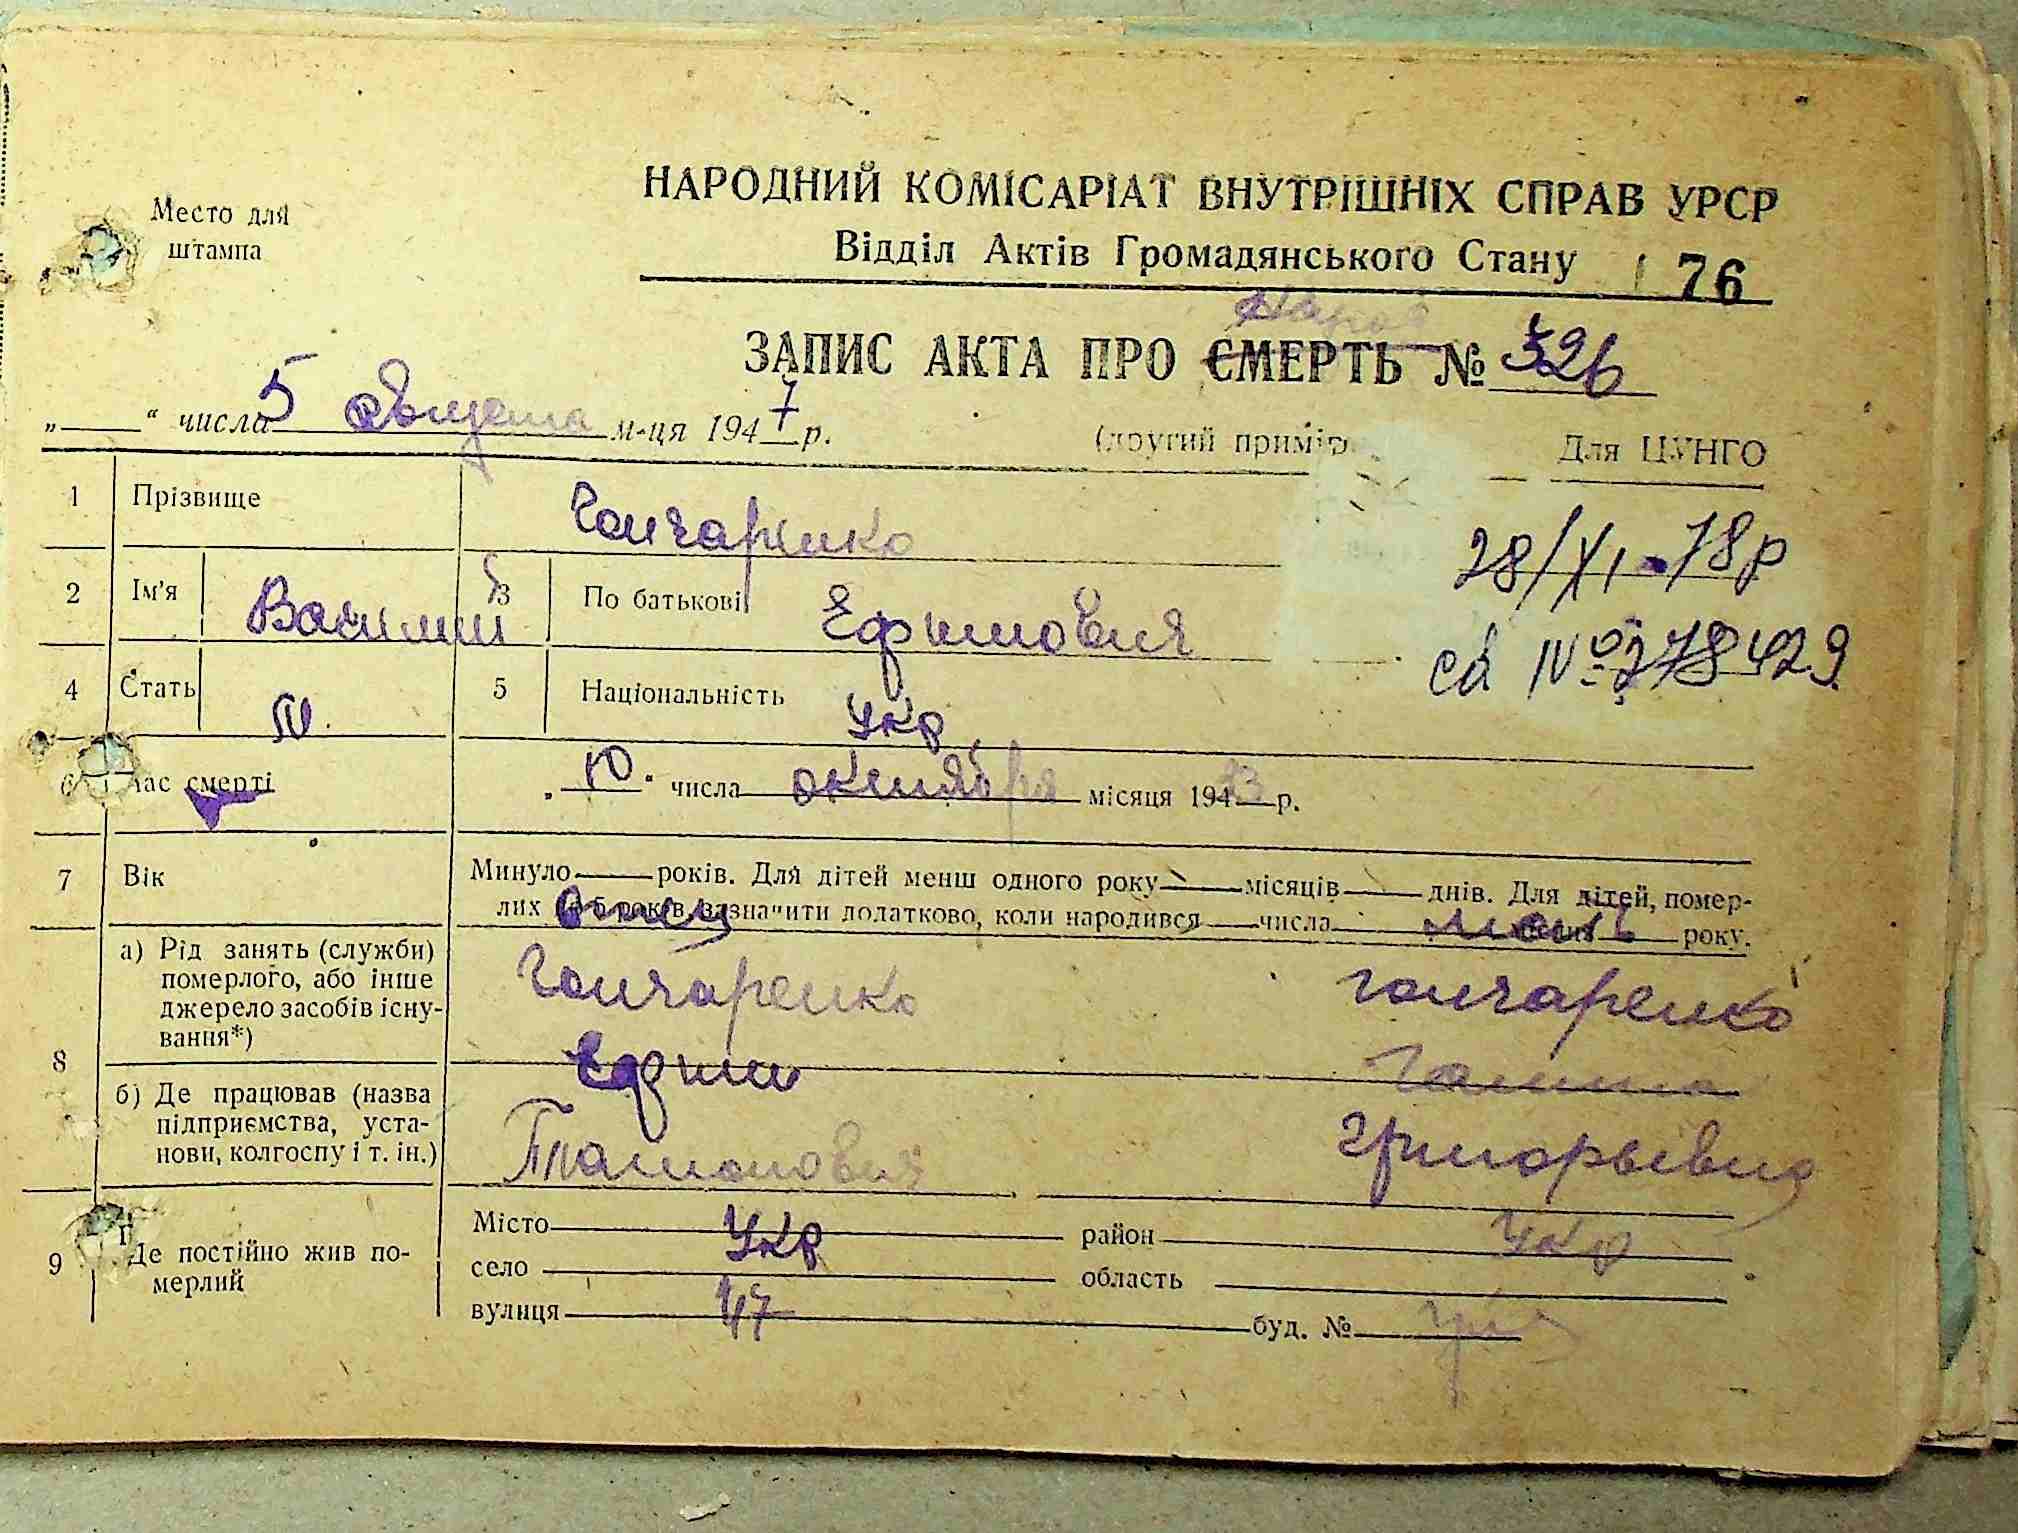 Место для
штампа
НАРОДНИЙ КОМІСАРІАТ ВНУТРІШНІХ СПРАВ УРСР
Відділ Актів Громадянського Стану
76
ЗАПИС АКТА ПРО СМЕРТЬ № 326
„ “ числа 5 августа м-ця 1947 р.
(другий примір Для ЦУНГО
1 Прізвище Гончаренко
28/XI-78р
2 Ім'я Василий 3 По батькові Ефимович
св №278429
4 Стать М. 5 Національність Укр
6 Час смерті „ 10. числа октября місяця 194 р.
7 Вік Минуло років. Для дітей менш одного року місяців днів. Для дітей, помер-
лих до 5 років, зазначити додатково, коли народився числа місяця року.
Отец мать
8 а) Рід занять (служби)
померлого, або інше
джерело засобів існу-
вання*)
Гончаренко Гончаренко
Ефим Галина
б) Де працював (назва
підприємства, уста-
нови, колгоспу і т. ін.)
Григорьевна
9 Де постійно жив по-
мерлий
Місто Укр район Укр
село область
вулиця 47 буд. №